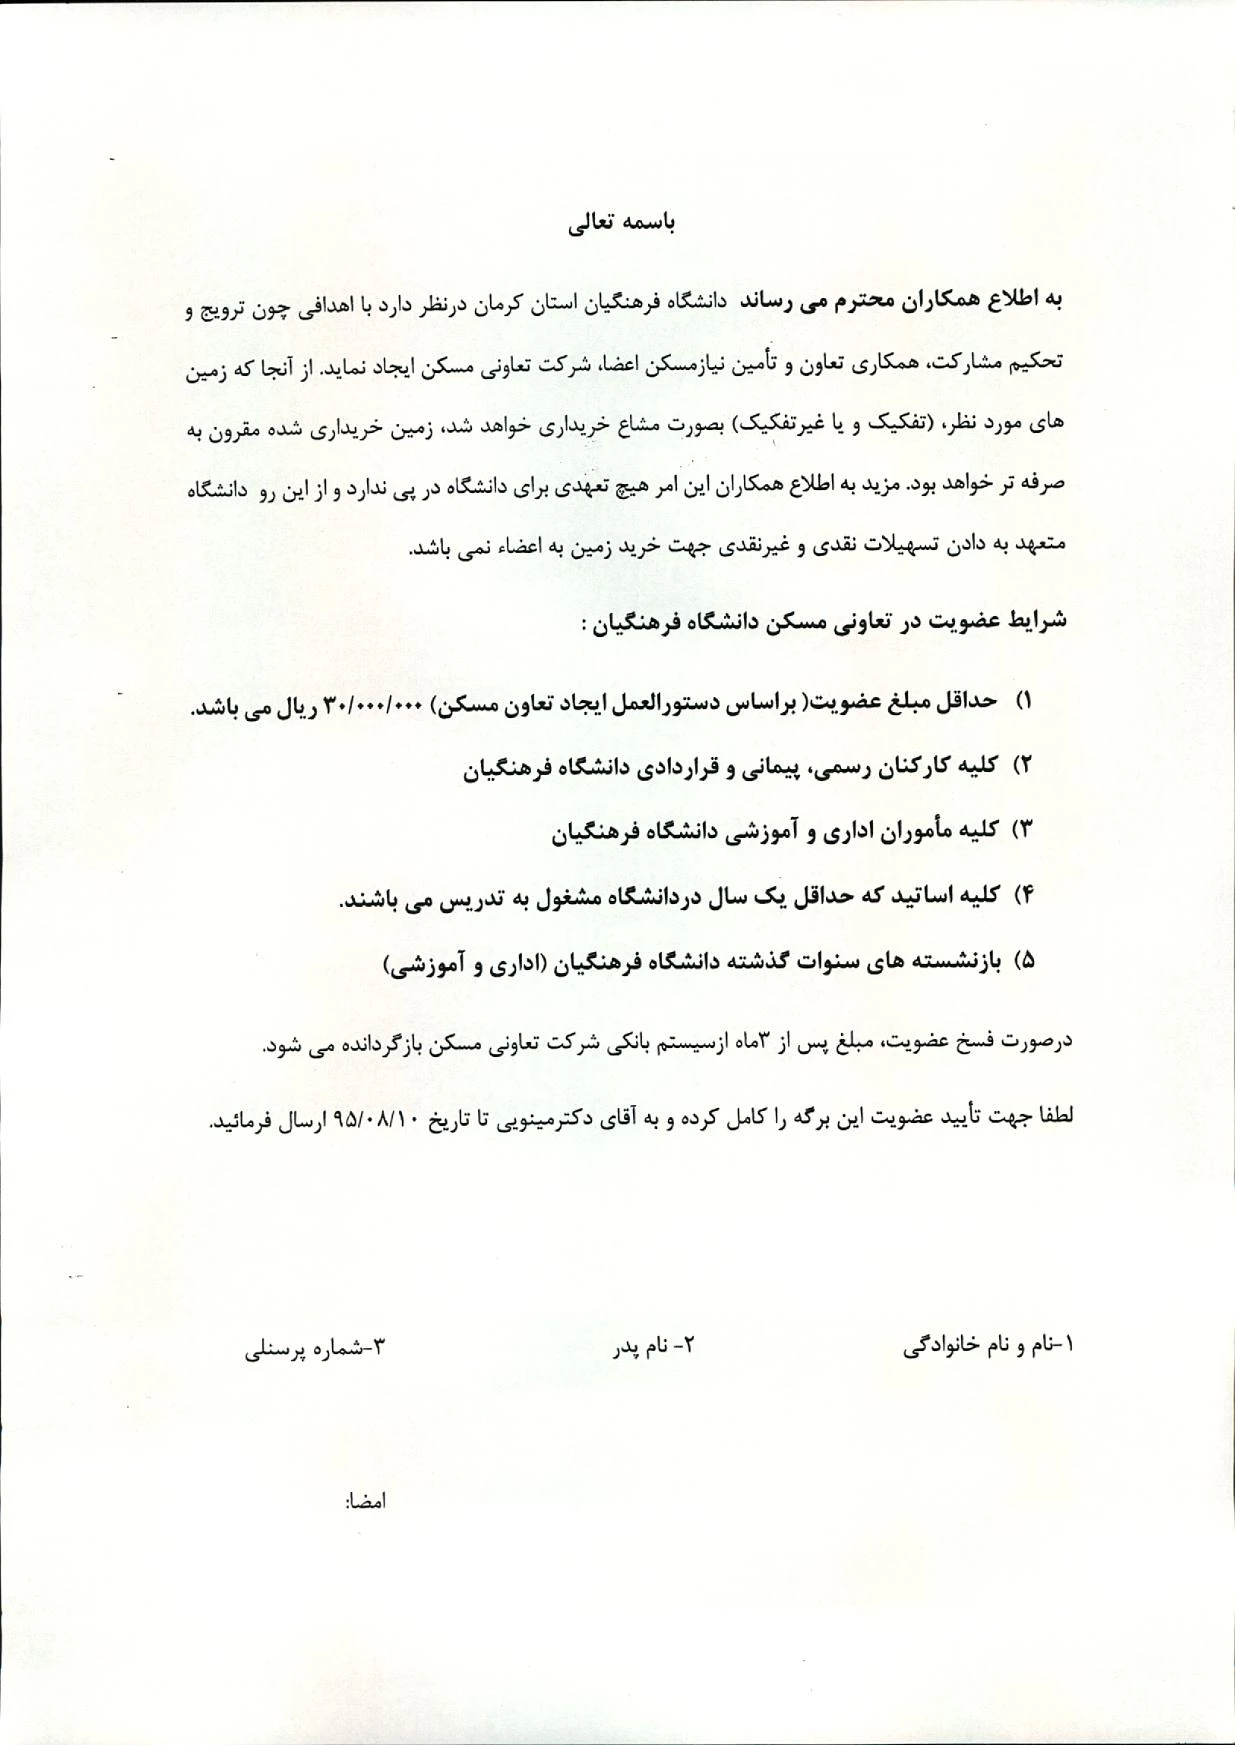 باسمه تعالی
به اطلاع همکاران محترم می رساند دانشگاه فرهنگیان استان کرمان درنظر دارد با اهدافی چون ترویج و
تحکیم مشارکت، همکاری تعاون و تأمین نیازمسکن اعضا، شرکت تعاونی مسکن ایجاد نماید. از آنجا که زمین
های مورد نظر، (تفکیک و یا غیرتفکیک) بصورت مشاع خریداری خواهد شد، زمین خریداری شده مقرون به
صرفه تر خواهد بود. مزید به اطلاع همکاران این امر هیچ تعهدی برای دانشگاه در پی ندارد و از این رو دانشگاه
متعهد به دادن تسهیلات نقدی و غیرنقدی جهت خرید زمین به اعضاء نمی باشد.
شرایط عضویت در تعاونی مسکن دانشگاه فرهنگیان :
۱) حداقل مبلغ عضویت( براساس دستورالعمل ایجاد تعاون مسکن) ۳۰/۰۰۰/۰۰۰ ریال می باشد.
۲) کلیه کارکنان رسمی، پیمانی و قراردادی دانشگاه فرهنگیان
۳) کلیه مأموران اداری و آموزشی دانشگاه فرهنگیان
۴) کلیه اساتید که حداقل یک سال دردانشگاه مشغول به تدریس می باشند.
۵) بازنشسته های سنوات گذشته دانشگاه فرهنگیان (اداری و آموزشی)
درصورت فسخ عضویت، مبلغ پس از ۳ماه ازسیستم بانکی شرکت تعاونی مسکن بازگردانده می شود.
لطفا جهت تأیید عضویت این برگه را کامل کرده و به آقای دکترمینویی تا تاریخ ۹۵/۰۸/۱۰ ارسال فرمائید.
۱-نام و نام خانوادگی ۲- نام پدر ۳-شماره پرسنلی
امضا: